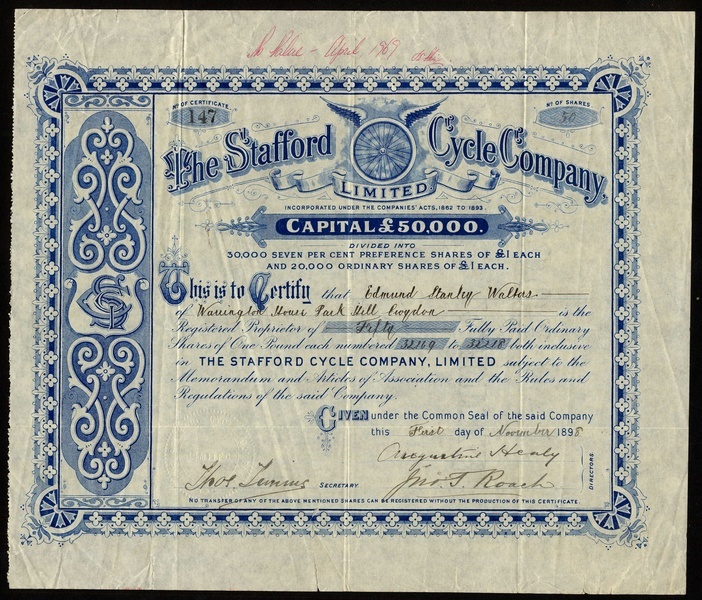 No Value - April 1969
Nº OF CERTIFICATE.
147
Nº OF SHARES
50
The Stafford Cycle Company,
LIMITED.
INCORPORATED UNDER THE COMPANIES' ACTS, 1862 TO 1893.
CAPITAL £50,000.
DIVIDED INTO
30,000 SEVEN PER CENT PREFERENCE SHARES OF £1 EACH
AND 20,000 ORDINARY SHARES OF £1 EACH.
This is to Certify that Edmund Stanley Walters
of Warrington House Park Hill Croydon is the
Registered Proprietor of Fifty Fully Paid Ordinary
Shares of One Pound each numbered 32169 to 32218 both inclusive
in THE STAFFORD CYCLE COMPANY, LIMITED subject to the
Memorandum and Articles of Association and the Rules and
Regulations of the said Company.
GIVEN under the Common Seal of the said Company
this First day of November 1898
Augustine Healy
Jno. T. Roach
DIRECTORS.
Thos. SECRETARY.
NO TRANSFER OF ANY OF THE ABOVE MENTIONED SHARES CAN BE REGISTERED WITHOUT THE PRODUCTION OF THIS CERTIFICATE.